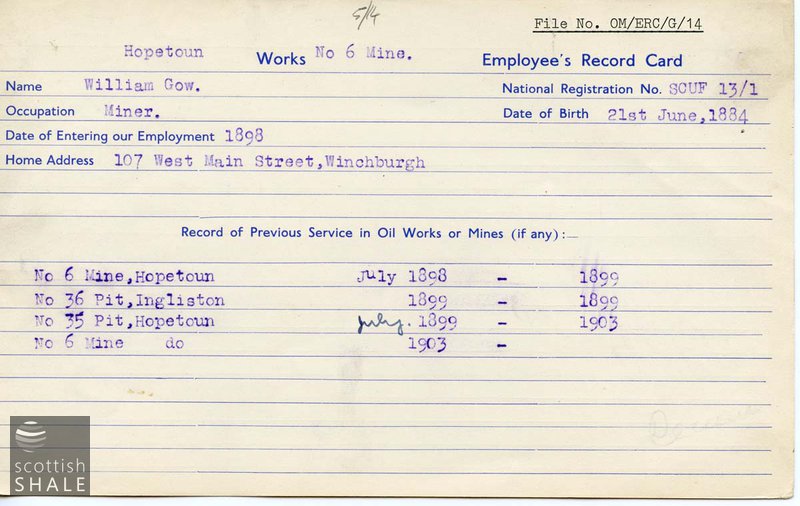 5/14
File No. OM/ERC/G/14
Hopetoun Works No 6 Mine. Employee's Record Card
Name William Gow. National Registration No. SCUF 13/1
Occupation Miner. Date of Birth 21st June,1884
Date of Entering our Employment 1898
Home Address 107 West Main Street,Winchburgh
Record of Previous Service in Oil Works or Mines (if any):—
No 6 Mine,Hopetoun July 1898 - 1899
No 36 Pit,Ingliston 1899 - 1899
No 35 Pit,Hopetoun july. 1899 - 1903
No 6 Mine do 1903 -
scottish
SHALE